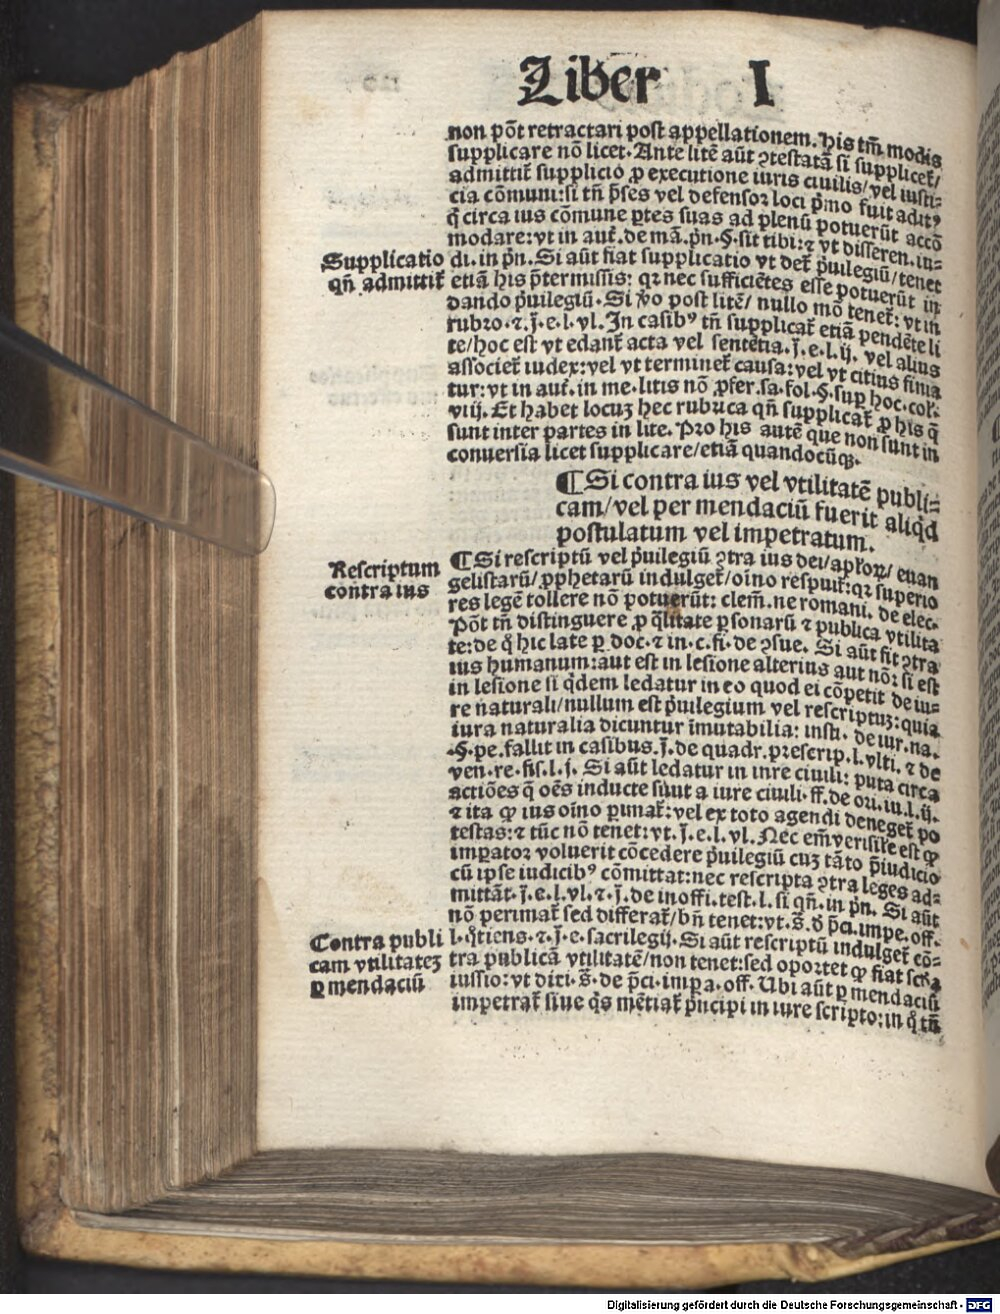 Liber I
non põt retractari post appellationem. His tm̃ modis
supplicare nõ licet. Ante litẽ aũt ꝯtestatã si supplicet̃/
admittit̃ supplicio ꝓ executione iuris ciuilis/ vel iusti-
cia cõmuni: si tñ p̃ses vel defensor loci p̃mo fuit aditꝰ
q̃ circa ius cõmune ptes suas ad plenũ potuerũt accõ
modare: vt in aut̃. de mã. pñ. §. sit tibi: ⁊ vt differen. iu-
Supplicatio
qñ admittit̃
di. in pñ. Si aũt fiat supplicatio vt det̃ p̃uilegiũ/ tenet
etiã his p̃termissis: qꝛ nec sufficiẽtes esse potuerũt in
dando p̃uilegiũ. Si ṽo post litẽ/ nullo mõ tenet̃: vt in
rubro. ⁊. j̃. e. l. vl. In casibꝰ tñ supplicat̃ etiã pendẽte li
te/ hoc est vt edant̃ acta vel sententia. j̃. e. l. ij. vel alius
associet̃ iudex: vel vt terminet̃ causa: vel vt citius finia
tur: vt in aut̃. in me. litis nõ ꝓfer. sa. fol. §. sup hoc. col̃.
viij. Et habet locuꝫ hec rubrica qñ supplicat̃ ꝓ his q̃
sunt inter partes in lite. Pro his autẽ que non sunt in
conuersia licet supplicare/ etiã quandocũqꝫ.
¶ Si contra ius vel vtilitatẽ publi-
cam/ vel per mendaciũ fuerit aliq̃d
postulatum vel impetratum.
Rescriptum
contra ius
¶ Si rescriptũ vel p̃uilegiũ ꝯtra ius dei/ aplõꝝ/ euan
gelistarũ/ ꝓphetarũ indulget̃/ oĩno respuit̃: qꝛ superio
res legẽ tollere nõ potuerũt: clem̃. ne romani. de elec.
Põt tñ distinguere ꝓ q̃litate psonarũ ⁊ publica vtilita
te: de q̃ hic late ꝑ doc. ⁊ in. c. fi. de ꝯsue. Si aũt sit ꝯtra
ius humanum: aut est in lesione alterius aut nõ: si est
in lesione si q̃dem ledatur in eo quod ei cõpetit de iu-
re naturali/ nullum est p̃uilegium vel rescriptuꝫ: quia
iura naturalia dicuntur ĩmutabilia: insti. de iur. na.
§. pe. fallit in casibus. j̃. de quadr. prescrip. l. vlti. ⁊ de
ven. re. fis. l. j. Si aũt ledatur in iure ciuili: puta circa
actiões q̃ oẽs inducte sunt a iure ciuili. ff. de ori. iu. l. ij.
⁊ ita ꝙ ius oĩno pimat̃: vel ex toto agendi deneget̃ po
testas: ⁊ tũc nõ tenet: vt. j̃. e. l. vl. Nec em̃ verisile est ꝙ
imꝑator voluerit cõcedere p̃uilegiũ cuꝫ tãto p̃iudicio
cũ ipse iudicibꝰ cõmittat: nec rescripta ꝯtra leges ad-
mittãt. j̃. e. l. vl. ⁊. j̃. de inoffi. test. l. si qñ. in pñ. Si aũt
nõ perimat̃ sed differat̃/ bñ tenet: vt. s̃. d̃ p̃ci. impe. off.
Contra publi
cam vtilitateꝫ
ꝑ mendaciũ
l. q̃tiens. ⁊. j̃. e. sacrilegij. Si aũt rescriptũ indulget̃ cõ-
tra publicã vtilitatẽ/ non tenet: sed oportet ꝙ fiat scd̃a
iussio: vt dixi. s̃. de p̃ci. impa. off. Ubi aũt ꝑ mendaciũ
impetrat̃ siue q̃s mẽtiat̃ p̃ncipi in iure scripto: in q̃ tñ
Digitalisierung gefördert durch die Deutsche Forschungsgemeinschaft - DFG